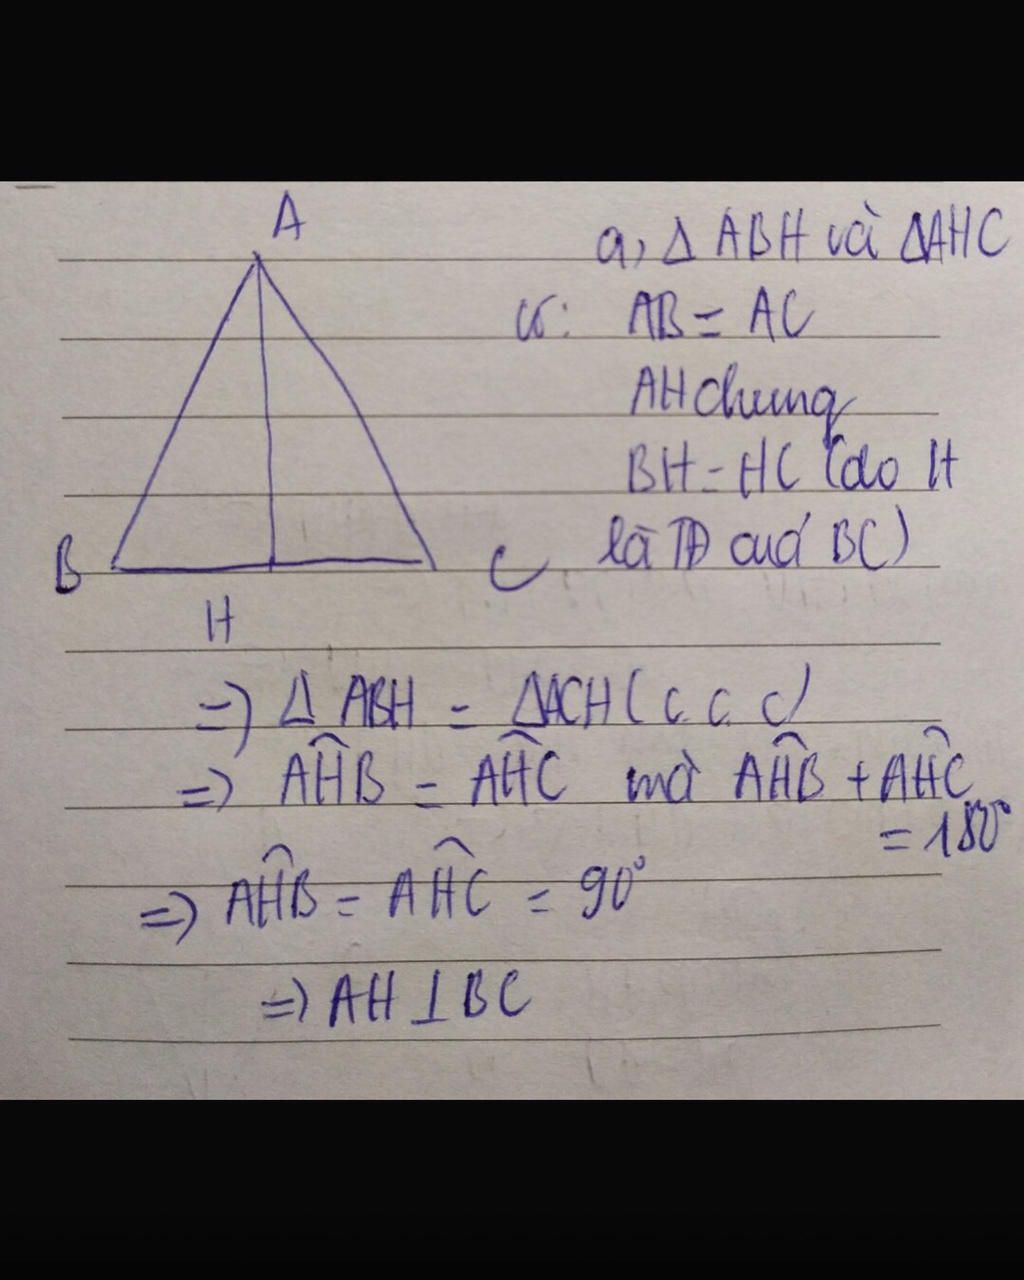 A
a, Δ ABH và ΔAHC
có: AB = AC
AH chung
BH = HC (do H
là TĐ cuả BC)
B
C
H
=> Δ ABH = ΔACH (c. c. c)
=> AĤB = AĤC mà AĤB + AĤC
= 180°
=> AĤB = AĤC = 90°
=> AH ⊥ BC